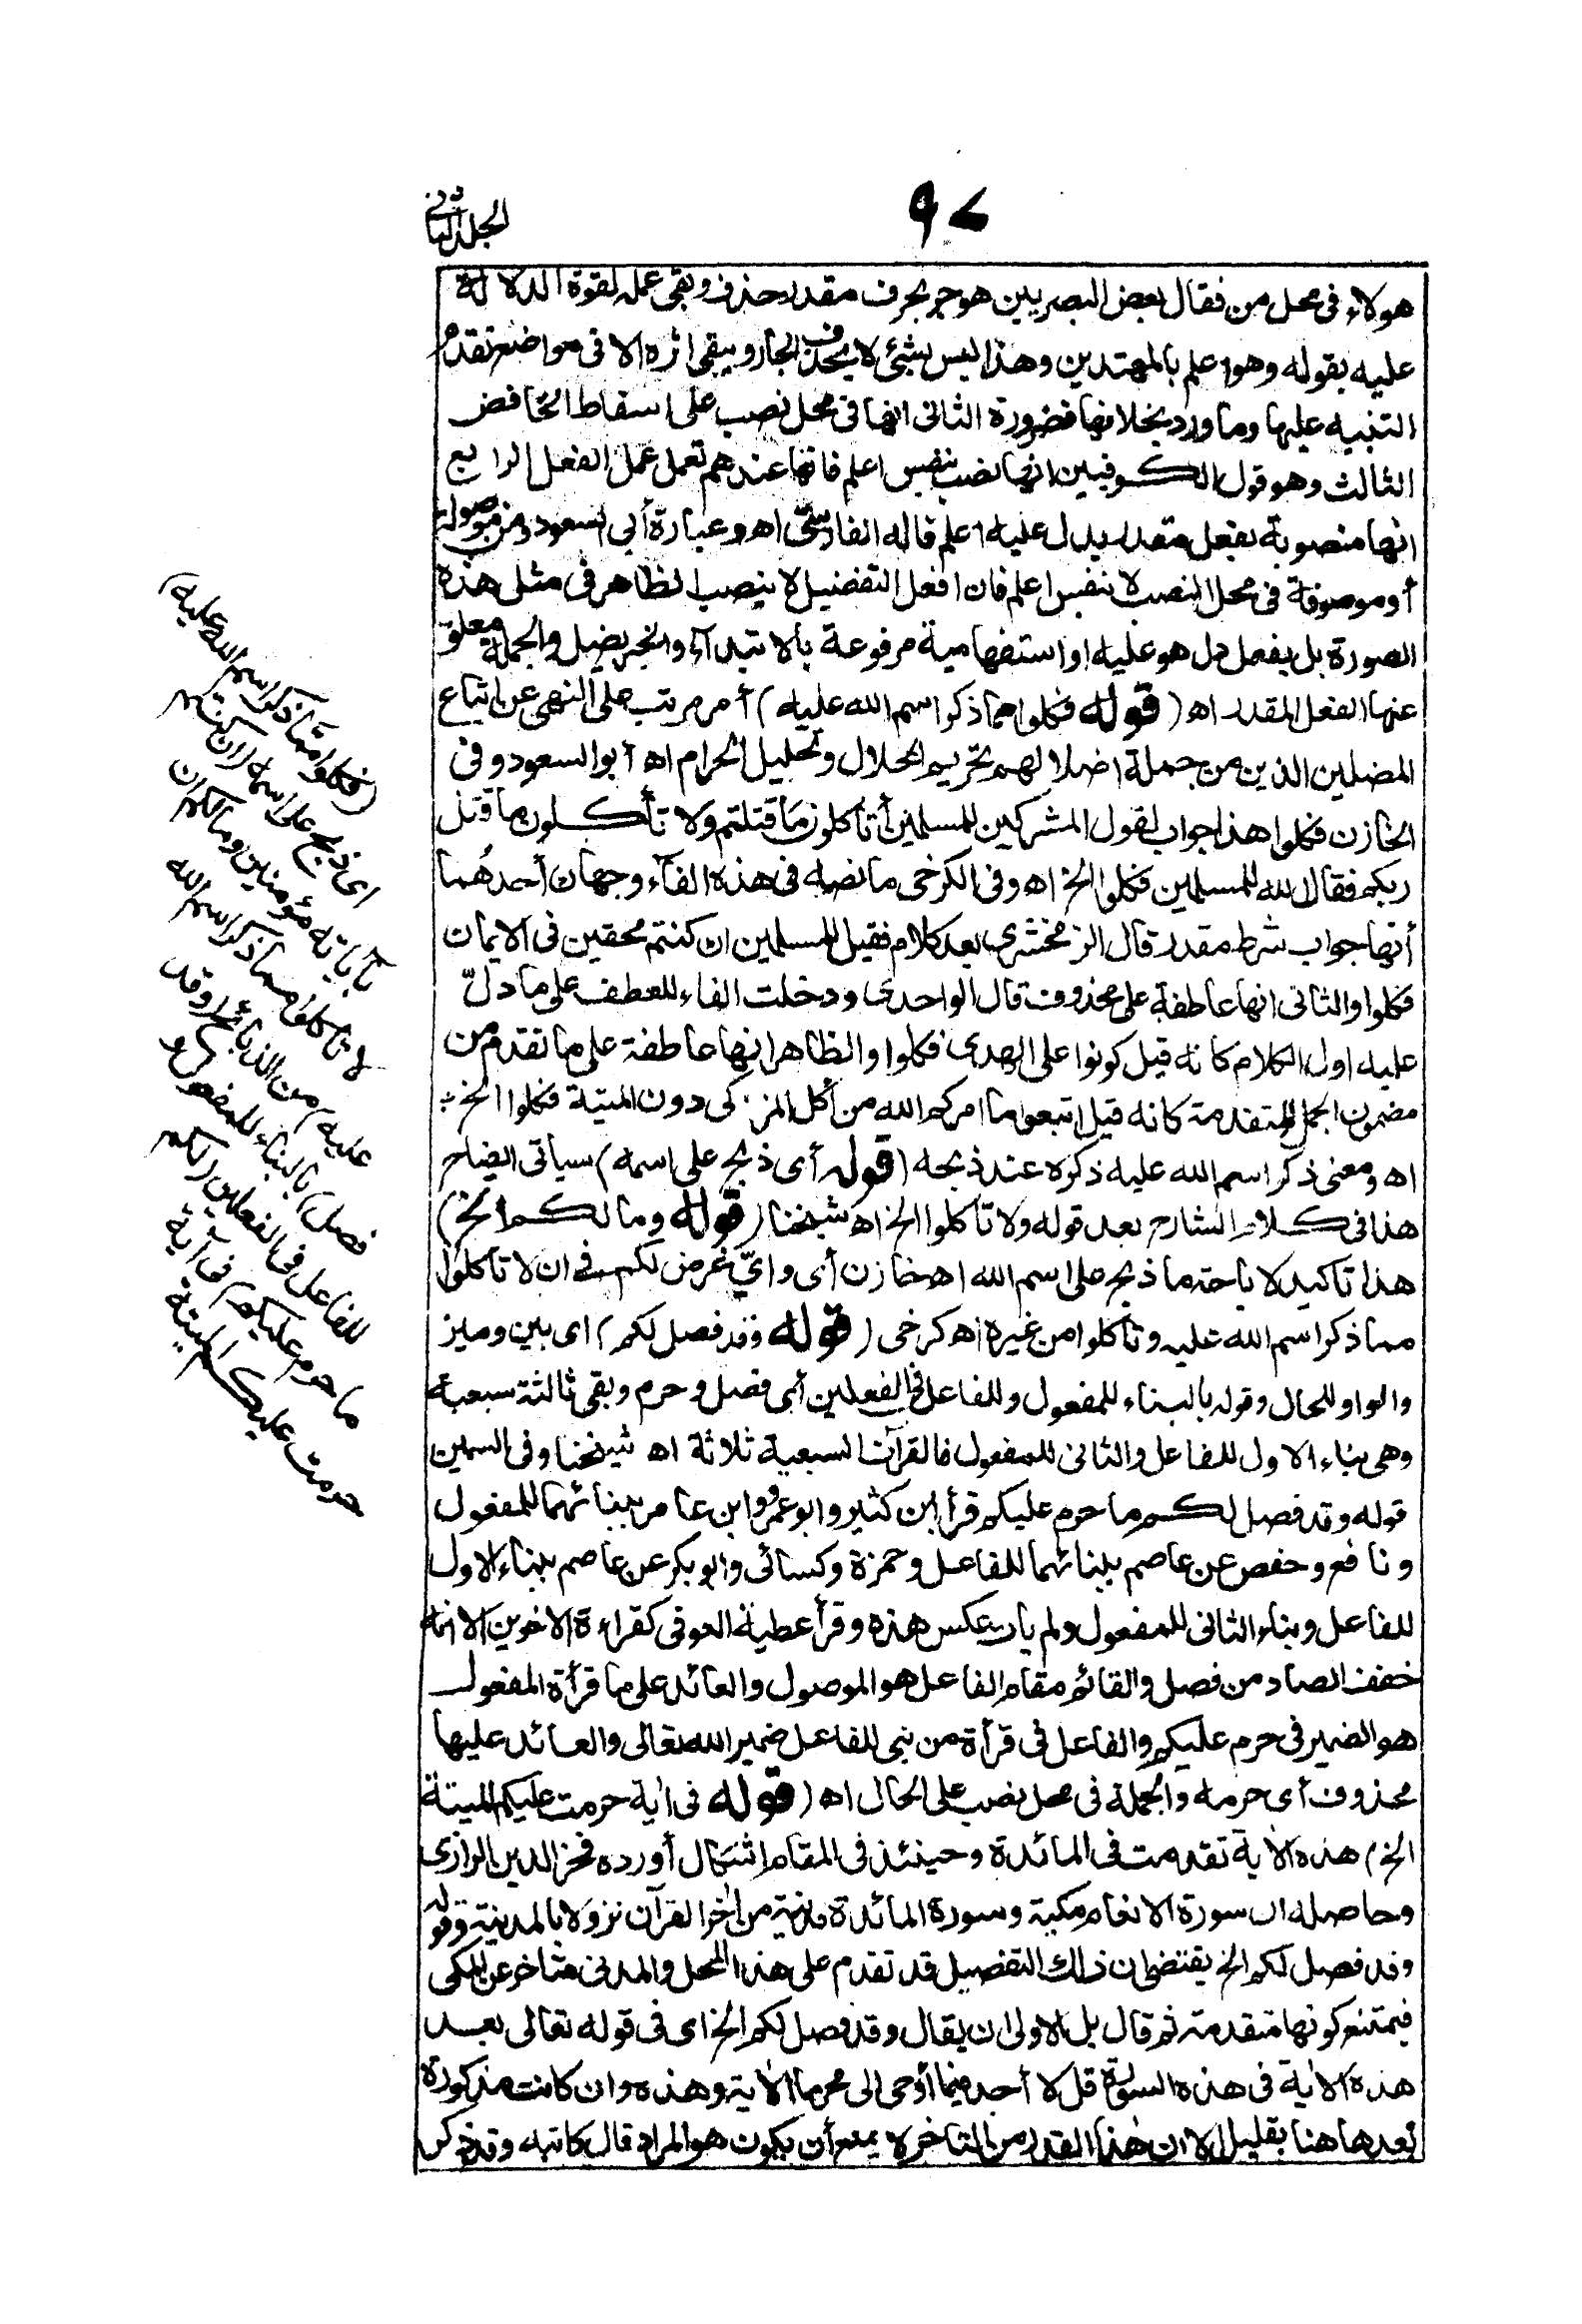 ٩٧
الجلد الثاني
هولاء فى محل من فقال بعض البصريين هو جر بحرف مقدر حذف وبقى عمله لقوة الدلالة
عليه بقوله وهو اعلم بالمهتدين وهذا ليس بشئ لا يحذف الجار ويبقى اثره الا فى مواضع تقدم
التنبيه عليها وما ورد بخلافها فضرورة الثانى انها فى محل نصب على اسقاط الخافض
الثالث وهو قول الكوفيين انها نصب بنفس اعلم فانها عندهم تعمل عمل الفعل الرابع
انها منصوبة بفعل مقدر يدل عليه اعلم قاله الفارسىّ اه وعبارة أبى السعود ومن موصولة
أو موصوفة فى محل النصب لا بنفس اعلم فان افعل التفضيل لا ينصب الظاهر فى مثل هذه
الصورة بل بفعل دل هو عليه او استفهامية مرفوعة بالابتداء والخبر يضل والجملة معلق
عنها الفعل المقدر اه (قوله فكلوا مما ذكر اسم الله عليه) أمر مرتب على النهى عن اتباع
المضلين الذين من جملة اضلالهم تحريم الحلال وتحليل الحرام اه أبو السعود وفى
الخازن فكلوا هذا جواب لقول المشركين للمسلمين أتأكلون مما قتلتم ولا تأكلون مما قتل
ربكم فقال الله للمسلمين فكلوا الخ اه وفى الكرخى ما نصه فى هذه الفآء وجهان أحدهُما
أنها جواب شرط مقدر قال الزمخشرى بعد كلام فقيل للمسلمين ان كنتم محقين فى الايمان
فكلوا والثانى انها عاطفة على محذوف قال الواحدى ودخلت الفاء للعطف على ما دلّ
عليه اول الكلام كانه قيل كونوا على الهدى فكلوا والظاهر انها عاطفة على ما تقدم من
مضمون الجمل المتقدمة كانه قيل اتبعوا ما امركم الله من أكل المزكى دون الميتة فكلوا الخ
اه ومعنى ذكر اسم الله عليه ذكره عند ذبحه (قوله أى ذبح على اسمه) سيأتى ايضاح
هذا فى كلام الشارح بعد قوله ولا تأكلوا الخ اه شيخنا (قوله وما لكم الخ)
هذا تاكيد لاباحة ما ذبح على اسم الله اه خازن أى وايّ غرض لكم فى ان لا تاكلوا
مما ذكر اسم الله عليه وتأكلوا من غيره اه كرخى (قوله وقد فصل لكم) اى بين وميز
والواو للحال وقوله بالبناء للمفعول وللفاعل فى الفعلين أى فصل وحرم وبقى ثالثة سبعية
وهى بناء الاول للفاعل والثانى للمفعول فالقرآت السبعية ثلاثة اه شيخنا وفى السمين
قوله وقد فصل لكم ما حرم عليكم قرأ ابن كثير وابو عمرو وابن عامر ببنائهما للمفعول
ونافع وحفص عن عاصم ببنائهما للفاعل وحمزة وكسائى وابو بكر عن عاصم ببناء الاول
للفاعل وبناء الثانى للمفعول ولم يأت عكس هذه وقرأ عطية العوفى كقراءة الاخوين الا انه
خفف الصاد من فصل والقائم مقام الفاعل هو الموصول والعائد على ما قرأة المفعول
هو الضمير فى حرم عليكم والفاعل فى قرأة من بنى للفاعل ضمير الله تعالى والعائد عليها
محذوف أى حرمه والجملة فى محل نصب على الحال اه (قوله فى اٰية حرمت عليكم الميتة
الخ) هذه الاٰية تقدمت فى المائدة وحينئذ فى المقام اشكال أورده فخر الدين الرازى
وحاصله ان سورة الانعام مكية وسورة المائدة مدنية من اٰخر القرآن نزولا بالمدينة وقوله
وقد فصل لكم الخ يقتضى ان ذلك التفصيل قد تقدم على هذا المحل والمدنى متاخر عن المكى
فيمتنع كونها متقدمة ثم قال بل الاولى ان يقال وقد فصل لكم الخ اى فى قوله تعالى بعد
هذه الاٰية فى هذه السورة قل لا أجد فيما أوحى الى محرما الاٰية وهذه وان كانت مذكورة
بعدها هنا بقليل الا ان هذا القدر من التاخر لا يمنع أن يكون هو المراد قال كاتبه وقد ذكر
(فكلوا ممّا ذكر اسم الله عليه)
اى ذبح على اسمه (ان كنتم
بآياته مؤمنين وما لكم ان
لا تاكلوا مما ذكر اسم الله
عليه) من الذبائح (وقد
فصل) بالبناء للمفعول و
للفاعل فى الفعلين (لكم
ما حرم عليكم) فى آية
حرمت عليكم الميتة